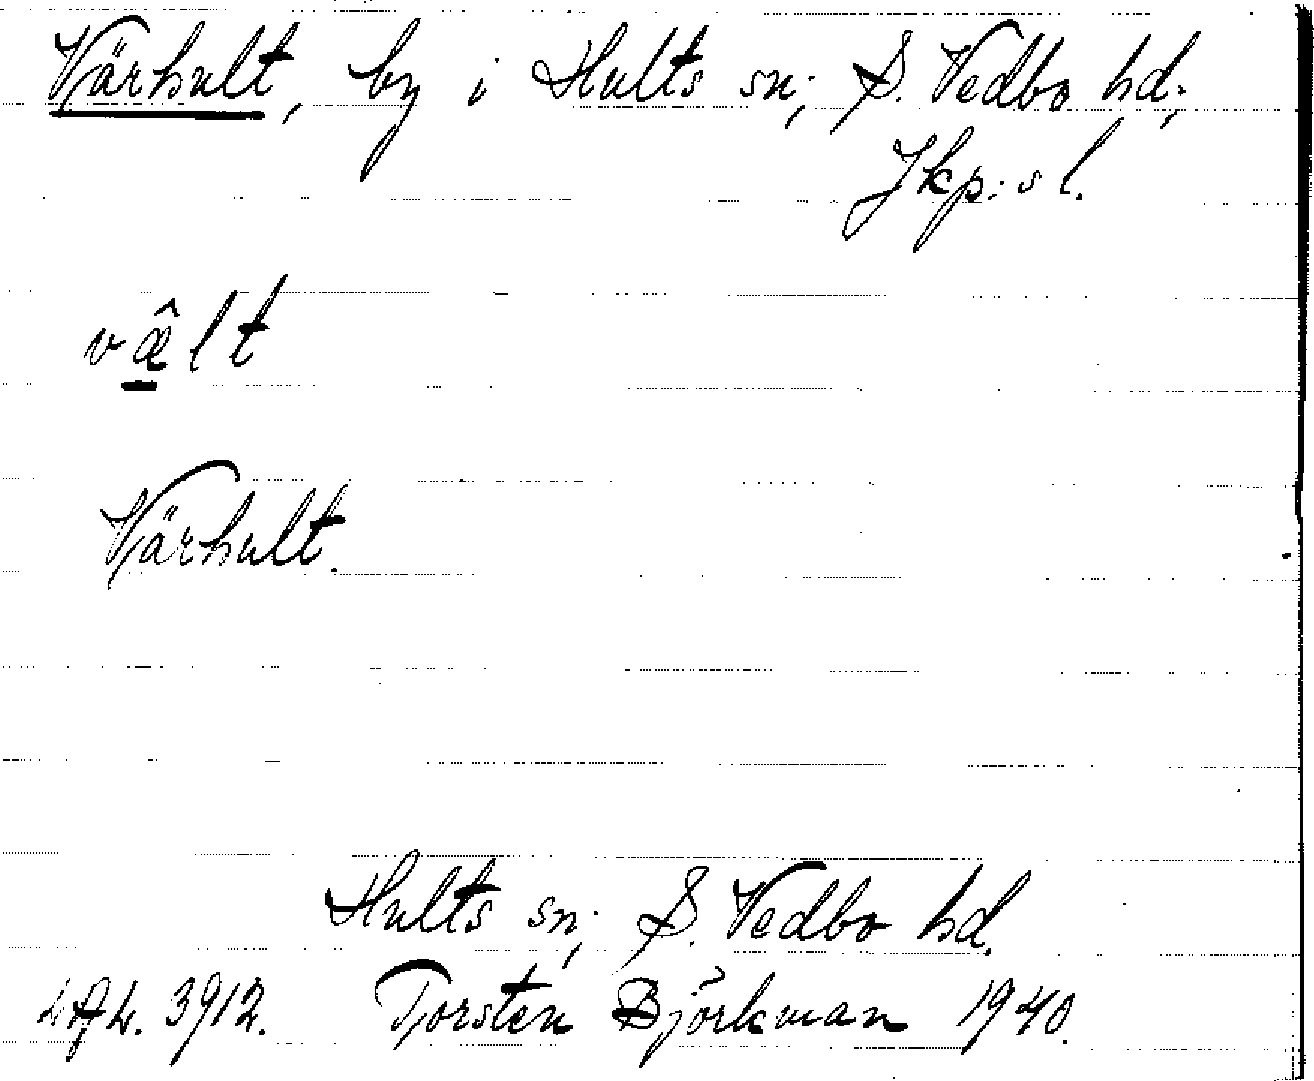 Värhult, by i Hults sn; S. Vedbo hd;
Jkp:s l.
væ̂lt
Värhult.
Hults sn; S. Vedbo hd.
3912. Torsten Björkman 1940.